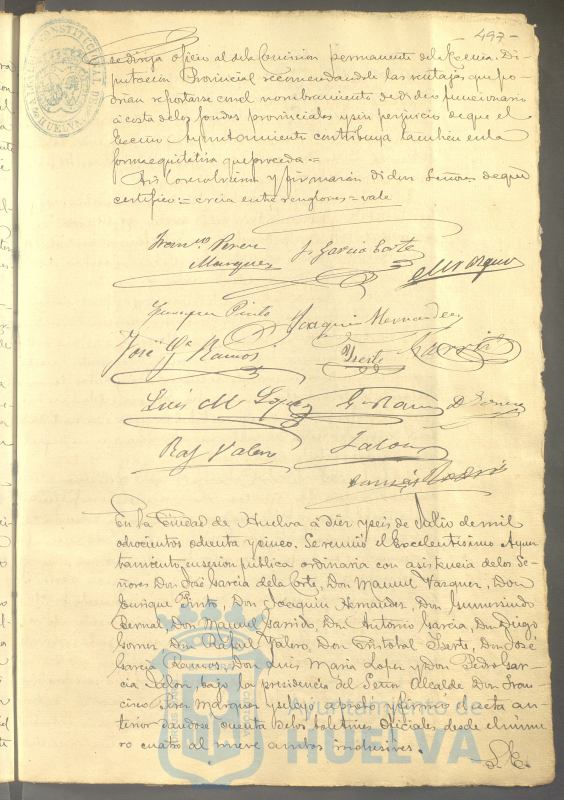 497-
ALCALDIA CONSTITUCIONAL DE HUELVA
se dirija oficio al de la Comision permanente de la Excma. Di-
putacion Provincial recomendandole las ventajas que po-
drian reportarse con el nombramiento de dicho funcionario
á costa de los fondos provinciales y sin perjuicio de que el
Excmo Ayuntamiento contribuya tambien en la
forma equitativa que proceda.=
Asi lo resolvieron y firmarán dichos Señores de que
certifico:= creia entre renglones = vale
Franco Perez
Marquez
J. Garcia Corte
M Vazquez
Enrique Pinto
Joaquin Hernandez
José Ga Ramos
Yserte
Garrido
Luis M Lopez
D. Gomez
Raf Valero
Jalon
En la Ciudad de Huelva á diez y seis de Julio de mil
ochocientos ochenta y cinco. Se reunió el Excelentisimo Ayun-
tamiento, en sesion publica ordinaria con asistencia de los Se-
ñores Don José Garcia de la Corte, Don Manuel Vazquez, Don
Enrique Pinto, Don Joaquin Hernandez, Don Gumersindo
Bernal, Don Manuel Garrido, Don Antonio Garcia, Don Diego
Gomez Don Rafael Valero, Don Cristobal Yserte, Don José
Garcia Ramos, Don Luis Maria Lopez y Don Pedro Gar-
cia Jalon, bajo la presidencia del Señor Alcalde Don Fran-
cisco Perez Marquez y se leyó aprobó y firmó el acta an-
terior dandose cuenta de los boletines Oficiales desde el núme-
ro cuatro al nueve ambos inclusives.
Ayuntamiento de
HUELVA